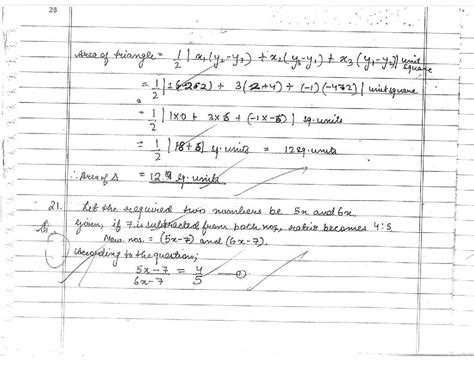 28
Area of triangle = 1/2 | x₁(y₂-y₃) + x₂(y₃-y₁) + x₃(y₁-y₂)| unit square
= 1/2 | 3(2+4) + (-1)(-4 2)| unit square
= 1/2 | 1×0 + 3×6 + (-1×-6)| sq. units
= 1/2 | 18+6| sq. units = 12 sq. units
∴ Area of Δ = 12 sq. units.
21. Let the required two numbers be 5x and 6x
Given, if 7 is subtracted from both nos, ratio becomes 4:5
New nos. = (5x-7) and (6x-7).
According to the question,
5x-7/6x-7 = 4/5 —